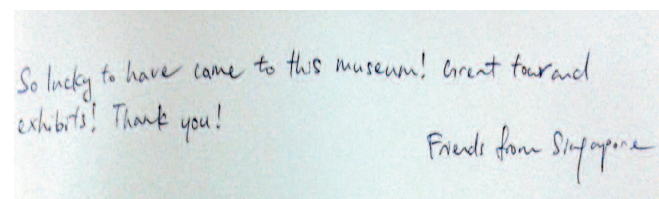 So lucky to have come to this museum! Great tour and
exhibits! Thank you!
Friends from Singapore